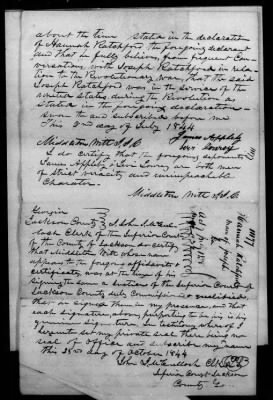 about the time stated in the declaration
of Hannah Ratchford the foregoing declarant
and that he fully believes from frequent con-
versation with Joseph Ratchford in rela-
tion to the Revolutionary war, that the said
Joseph Ratchford was in the service of the
United States during the Revolution as
stated in the foregoing declaration
Sworn to and subscribed before me
This 2nd day of July 1844
James Appleby
Middleton Witt J.P.
I do certify that the foregoing deponents
James Appleby & are both men
of strict veracity and unimpeachable
Character.
Middleton Witt J.P.
Georgia
Jackson County I John
Clerk of the Superior Court
of the County of Jackson do certify
that Middleton Witt whose name
appears to the foregoing affidavit &
certificate, was at the time of his
signing the same a Justice of the
Jackson County duly commissioned & qualified,
that he signed them in my presence and that
each signature above purporting to be his is his
genuine signature. In testimony whereof I
hereunto set my private seal there being no
seal of office and subscribe my name
this 23rd day of October 1844
Superior Court Jackson
County Ga